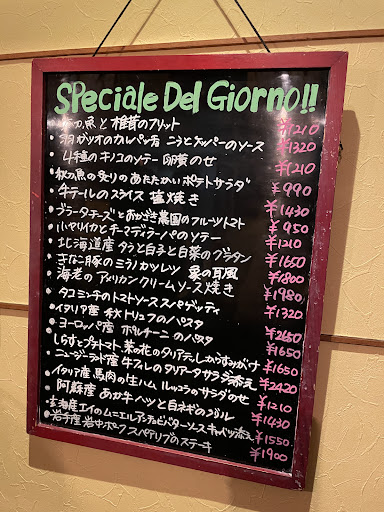 Speciale Del Giorno!!
魚と椎茸のフリット ¥1210
ガツオのカルパッチョ ニラとケッパーのソース ¥1320
4種のキノコのソテー 卵黄のせ ¥1210
秋刀魚の炙りのあたたかいポテトサラダ ¥990
牛テールのスライス 塩焼き ¥1430
ブラータチーズとおかざき農園のフルーツトマト ¥950
小ヤリイカとチーマデラーパのソテー ¥1210
北海道産 タラと白子と白菜のグラタン ¥1650
きなこ豚のミラノカツレツ 象の耳風 ¥1800
海老のアメリカンクリームソース焼き ¥1980
タコミンチのトマトソーススパゲッティ ¥1320
イタリア産 秋トリュフのパスタ ¥2650
ヨーロッパ産 ポルチーニのパスタ ¥1650
しらすとプチトマト、菜の花のタリアテッレ からすみがけ ¥1650
ニュージーランド産 牛フィレのタリアータ サラダ添え ¥2420
イタリア産 馬肉の生ハム ルッコラのサラダのせ ¥1210
阿蘇産 あか牛ハツと白ネギのグリル ¥1430
産エイのムニエル アンチョビバターソース キャベツ添え ¥1550
岩手産 岩中ポークスペアリブのステーキ ¥1900